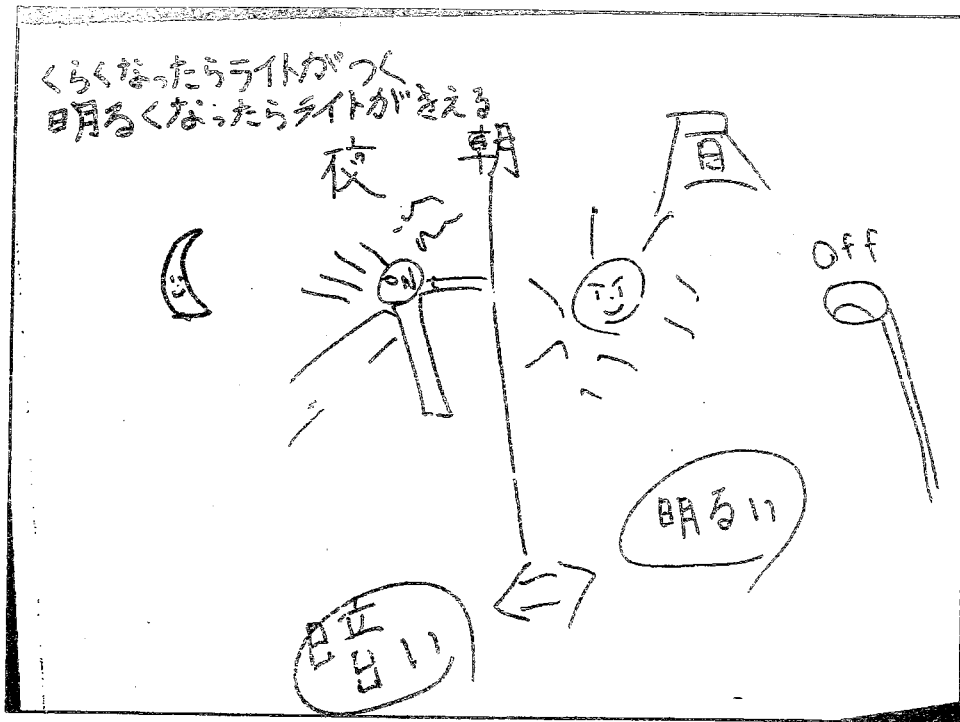 くらくなったらライトがつく
明るくなったらライトがきえる
夜
朝
昼
ON
Off
明るい
暗い